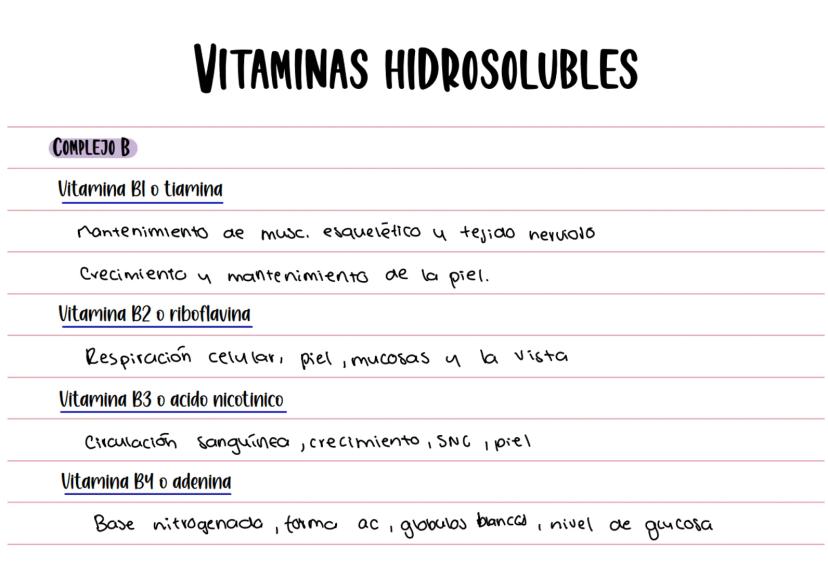 VITAMINAS HIDROSOLUBLES
COMPLEJO B
Vitamina B1 o tiamina
Mantenimiento de musc. esquelético y tejido nervioso
Crecimiento y mantenimiento de la piel.
Vitamina B2 o riboflavina
Respiración celular, piel, mucosas y la vista
Vitamina B3 o acido nicotinico
Circulación sanguínea, crecimiento, SNC, piel
Vitamina B4 o adenina
Base nitrogenada, forma ac, globulos blancos, nivel de glucosa